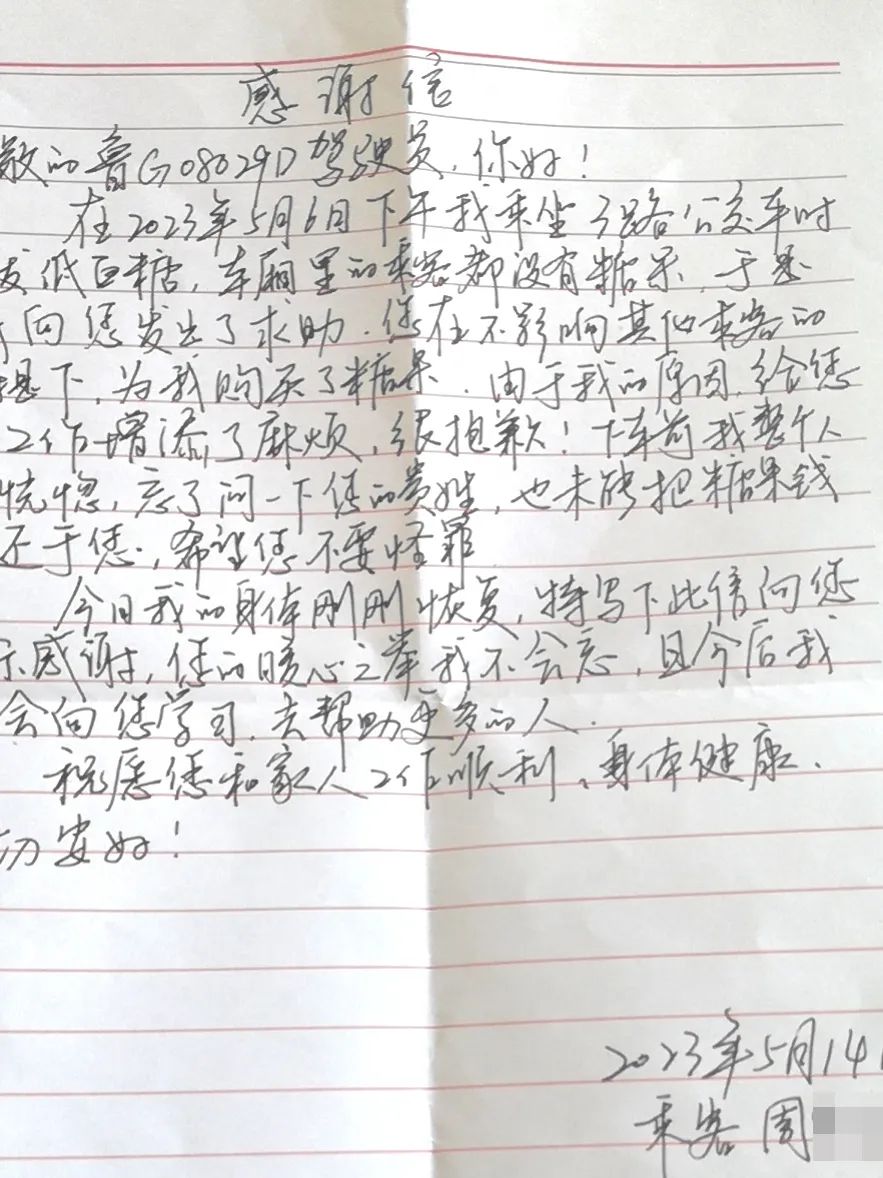 感谢信
敬的鲁G08029D驾驶员,你好!
在2023年5月6日下午我乘坐3路公交车时
发低白糖,车厢里的乘客都没有糖果,于是
向您发出了求助.您在不影响其他乘客的
提下,为我购买了糖果.由于我的原因,给您
工作增添了麻烦,很抱歉!下车前我整个人
恍惚,忘了问一下您的贵姓,也未能把糖果钱
还于您,希望您不要怪罪
今日我的身体刚刚恢复,特写下此信向您
示感谢,您的暖心之举我不会忘,且今后我
会向您学习,去帮助更多的人.
祝愿您和家人工作顺利、身体健康.
切安好!
2023年5月14
乘客 周